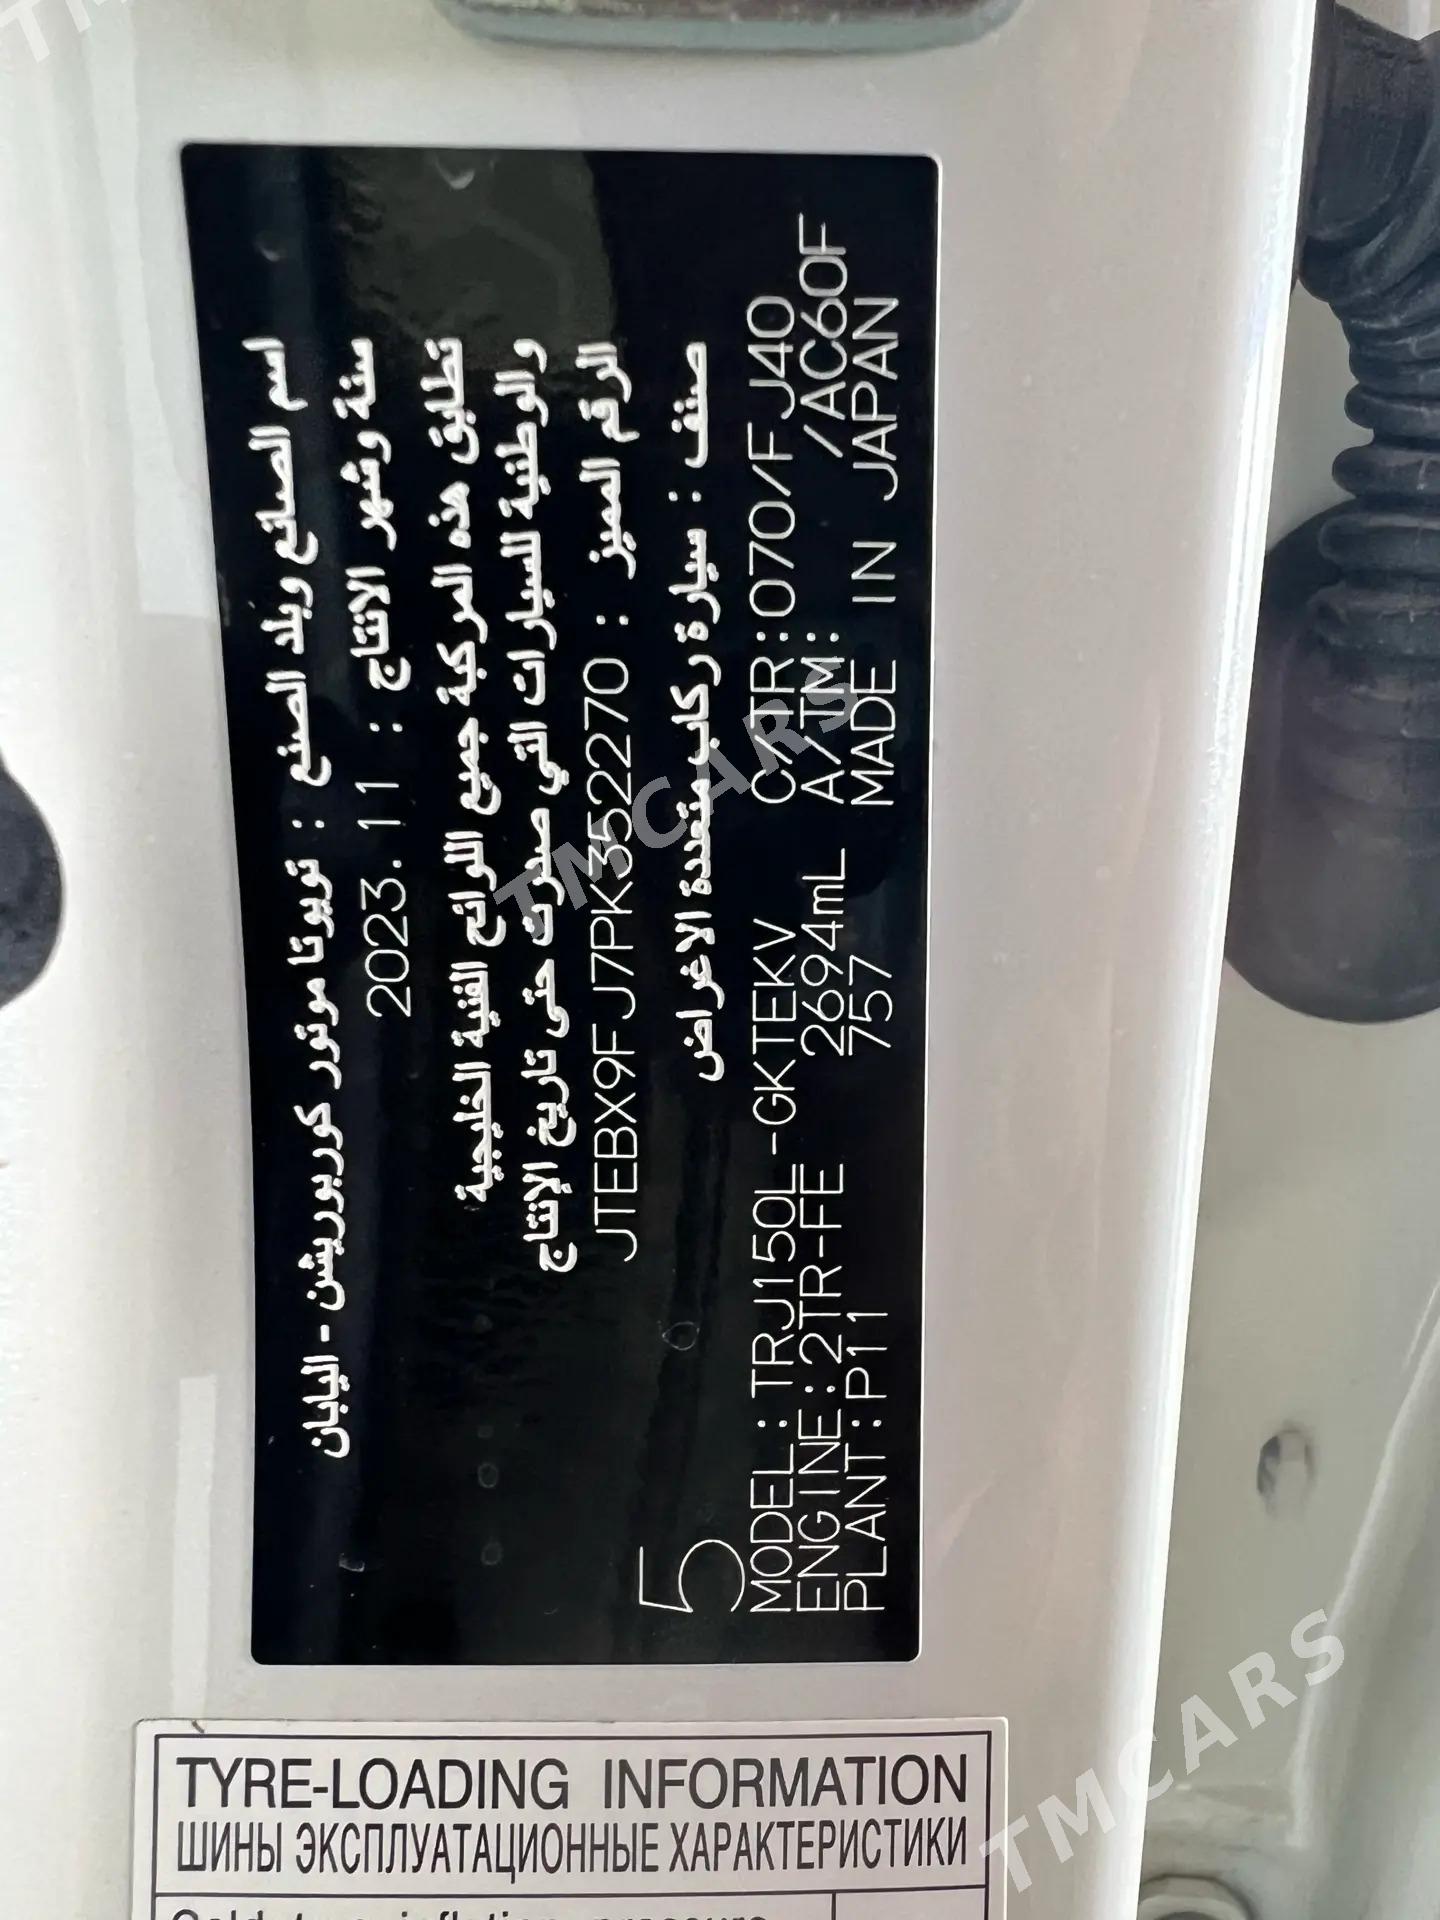 اسم الصانع وبلد الصنع : تويوتا موتور كوربوريشن - اليابان
سنة وشهر الانتاج : 2023.11
تطابق هذه المركبة جميع اللوائح الفنية الخليجية
والوطنية للسيارات التي صدرت حتى تاريخ الإنتاج
الرقم المميز : JTEBX9FJ7PK352270
صنف : سيارة ركاب متعددة الاغراض
5
MODEL:TRJ150L-GKTEKV C/TR:070/FJ40
ENGINE:2TR-FE 2694mL A/TM: /AC60F
PLANT:P11 757 MADE IN JAPAN
TYRE-LOADING INFORMATION
ШИНЫ ЭКСПЛУАТАЦИОННЫЕ ХАРАКТЕРИСТИКИ
Cold tyre inflation pressure
TMCARS
TMCARS